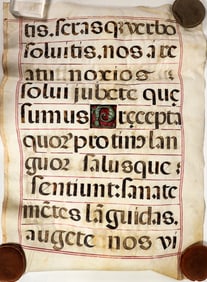 tis. seras q̃ verbo
soluitis. nos a re
atu noxios
solui jubete quę
sumus Pręcepta
quor̃ protinꝰ lan
guor salusque:
sentiunt: sanate
mẽtes lãguidas.
augete nos vi